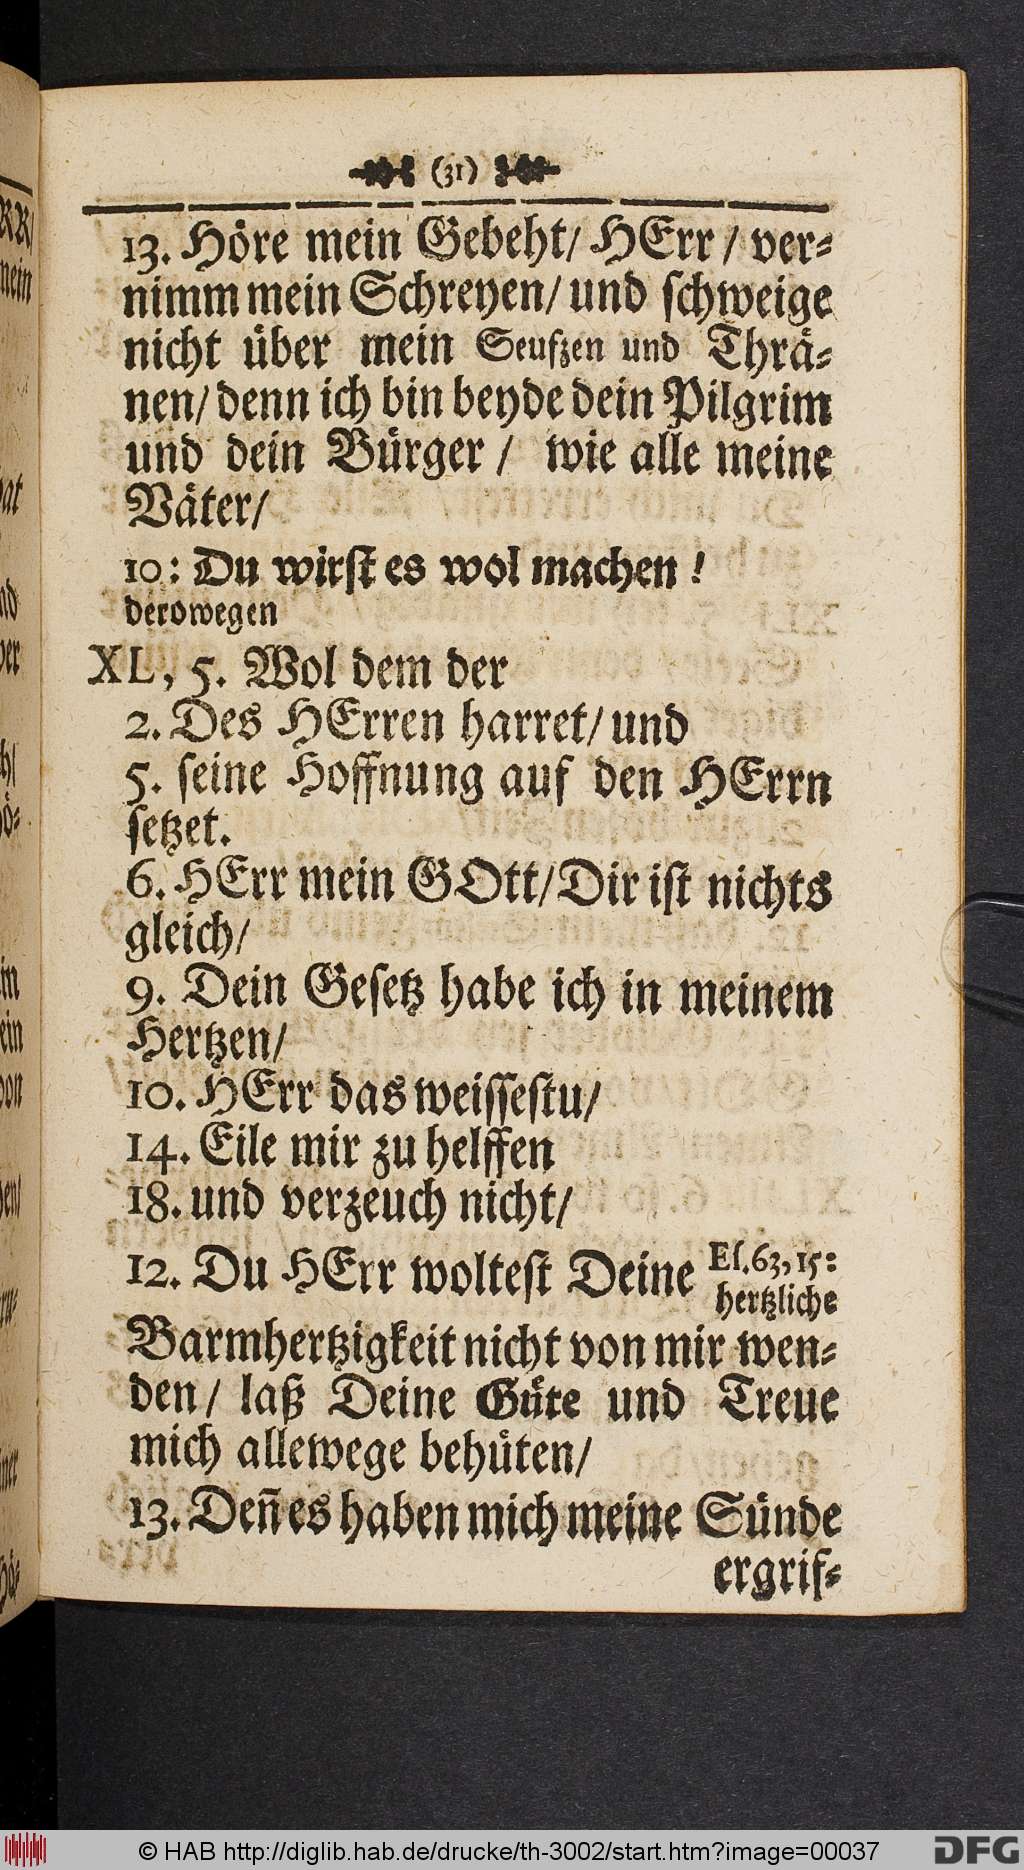 (31)
13. Höre mein Gebeht/ HErr/ ver⸗
nimm mein Schreyen/ und ſchweige
nicht über mein Seufzen und Thrä⸗
nen/ denn ich bin beyde dein Pilgrim
und dein Bürger/ wie alle meine
Väter/
10: Du wirſt es wol machen!
derowegen
XL, 5. Wol dem der
2. Des HErren harret/ und
5. ſeine Hoffnung auf den HErrn
ſetzet.
6. HErr mein GOtt/ Dir iſt nichts
gleich/
9. Dein Geſetz habe ich in meinem
Hertzen/
10. HErr das weiſſeſtu/
14. Eile mir zu helffen
18. und verzeuch nicht/
12. Du HErr wolteſt Deine Eſ. 63, 15:
hertzliche
Barmhertzigkeit nicht von mir wen⸗
den/ laß Deine Güte und Treue
mich allewege behüten/
13. Deñ es haben mich meine Sünde
ergrif⸗
© HAB http://diglib.hab.de/drucke/th-3002/start.htm?image=00037
DFG